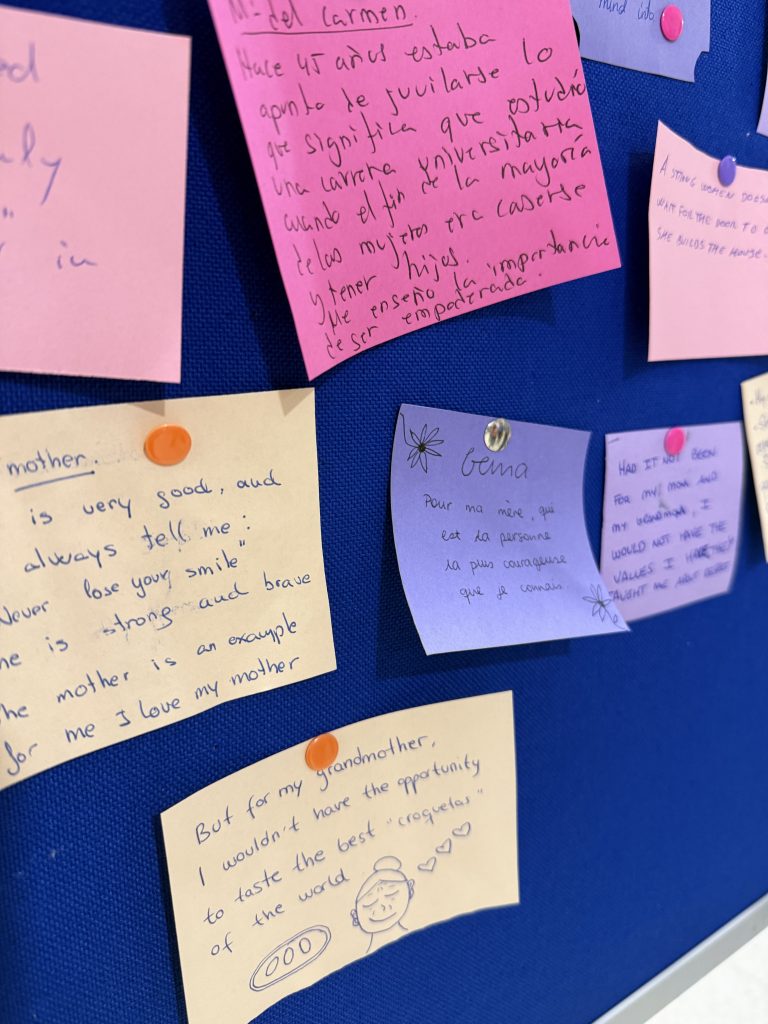 Mª del Carmen.
Hace 45 años estaba
apunto de juvilarse lo
que significa que estudió
una carrera universitaria
cuando el fin de la mayoría
delas mujeres era caserse
y tener hijos.
Me enseño la importancia
de ser empoderada.
mind into
A STRONG WOMEN
WAIT FOR THE DOOR TO
SHE BUILDS THE HOUSE.
in
mother.
is very good, and
always tell me:
Never lose your smile"
is strong and brave
mother is an example
for me I love my mother
Gema
Pour ma mère, qui
est la personne
la plus courageuse
que je connais
HAD IT NOT BEEN
FOR MY MOM AND
MY GRANDMA, I
WOULD NOT HAVE THE
VALUES I
TAUGHT ME
But for my grandmother,
I wouldn't have the opportunity
to taste the best "croquetas"
of the world